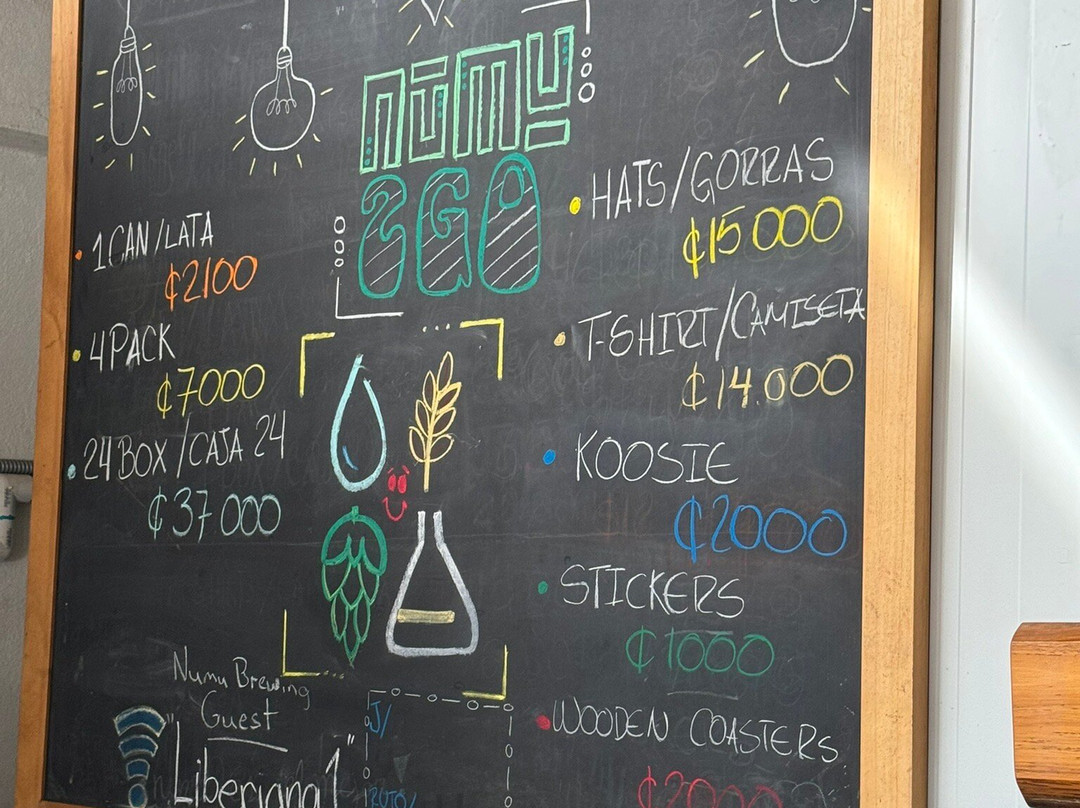 NUMU
2GO
1 CAN/LATA
₡2100
4 PACK
₡7000
24 BOX/CAJA 24
₡37 000
HATS/GORRAS
₡15 000
T-SHIRT/CAMISETA
₡14.000
KOOSIE
₡2000
STICKERS
₡1000
WOODEN COASTERS
₡2000
Numu Brewing
Guest
"Liberiana1"